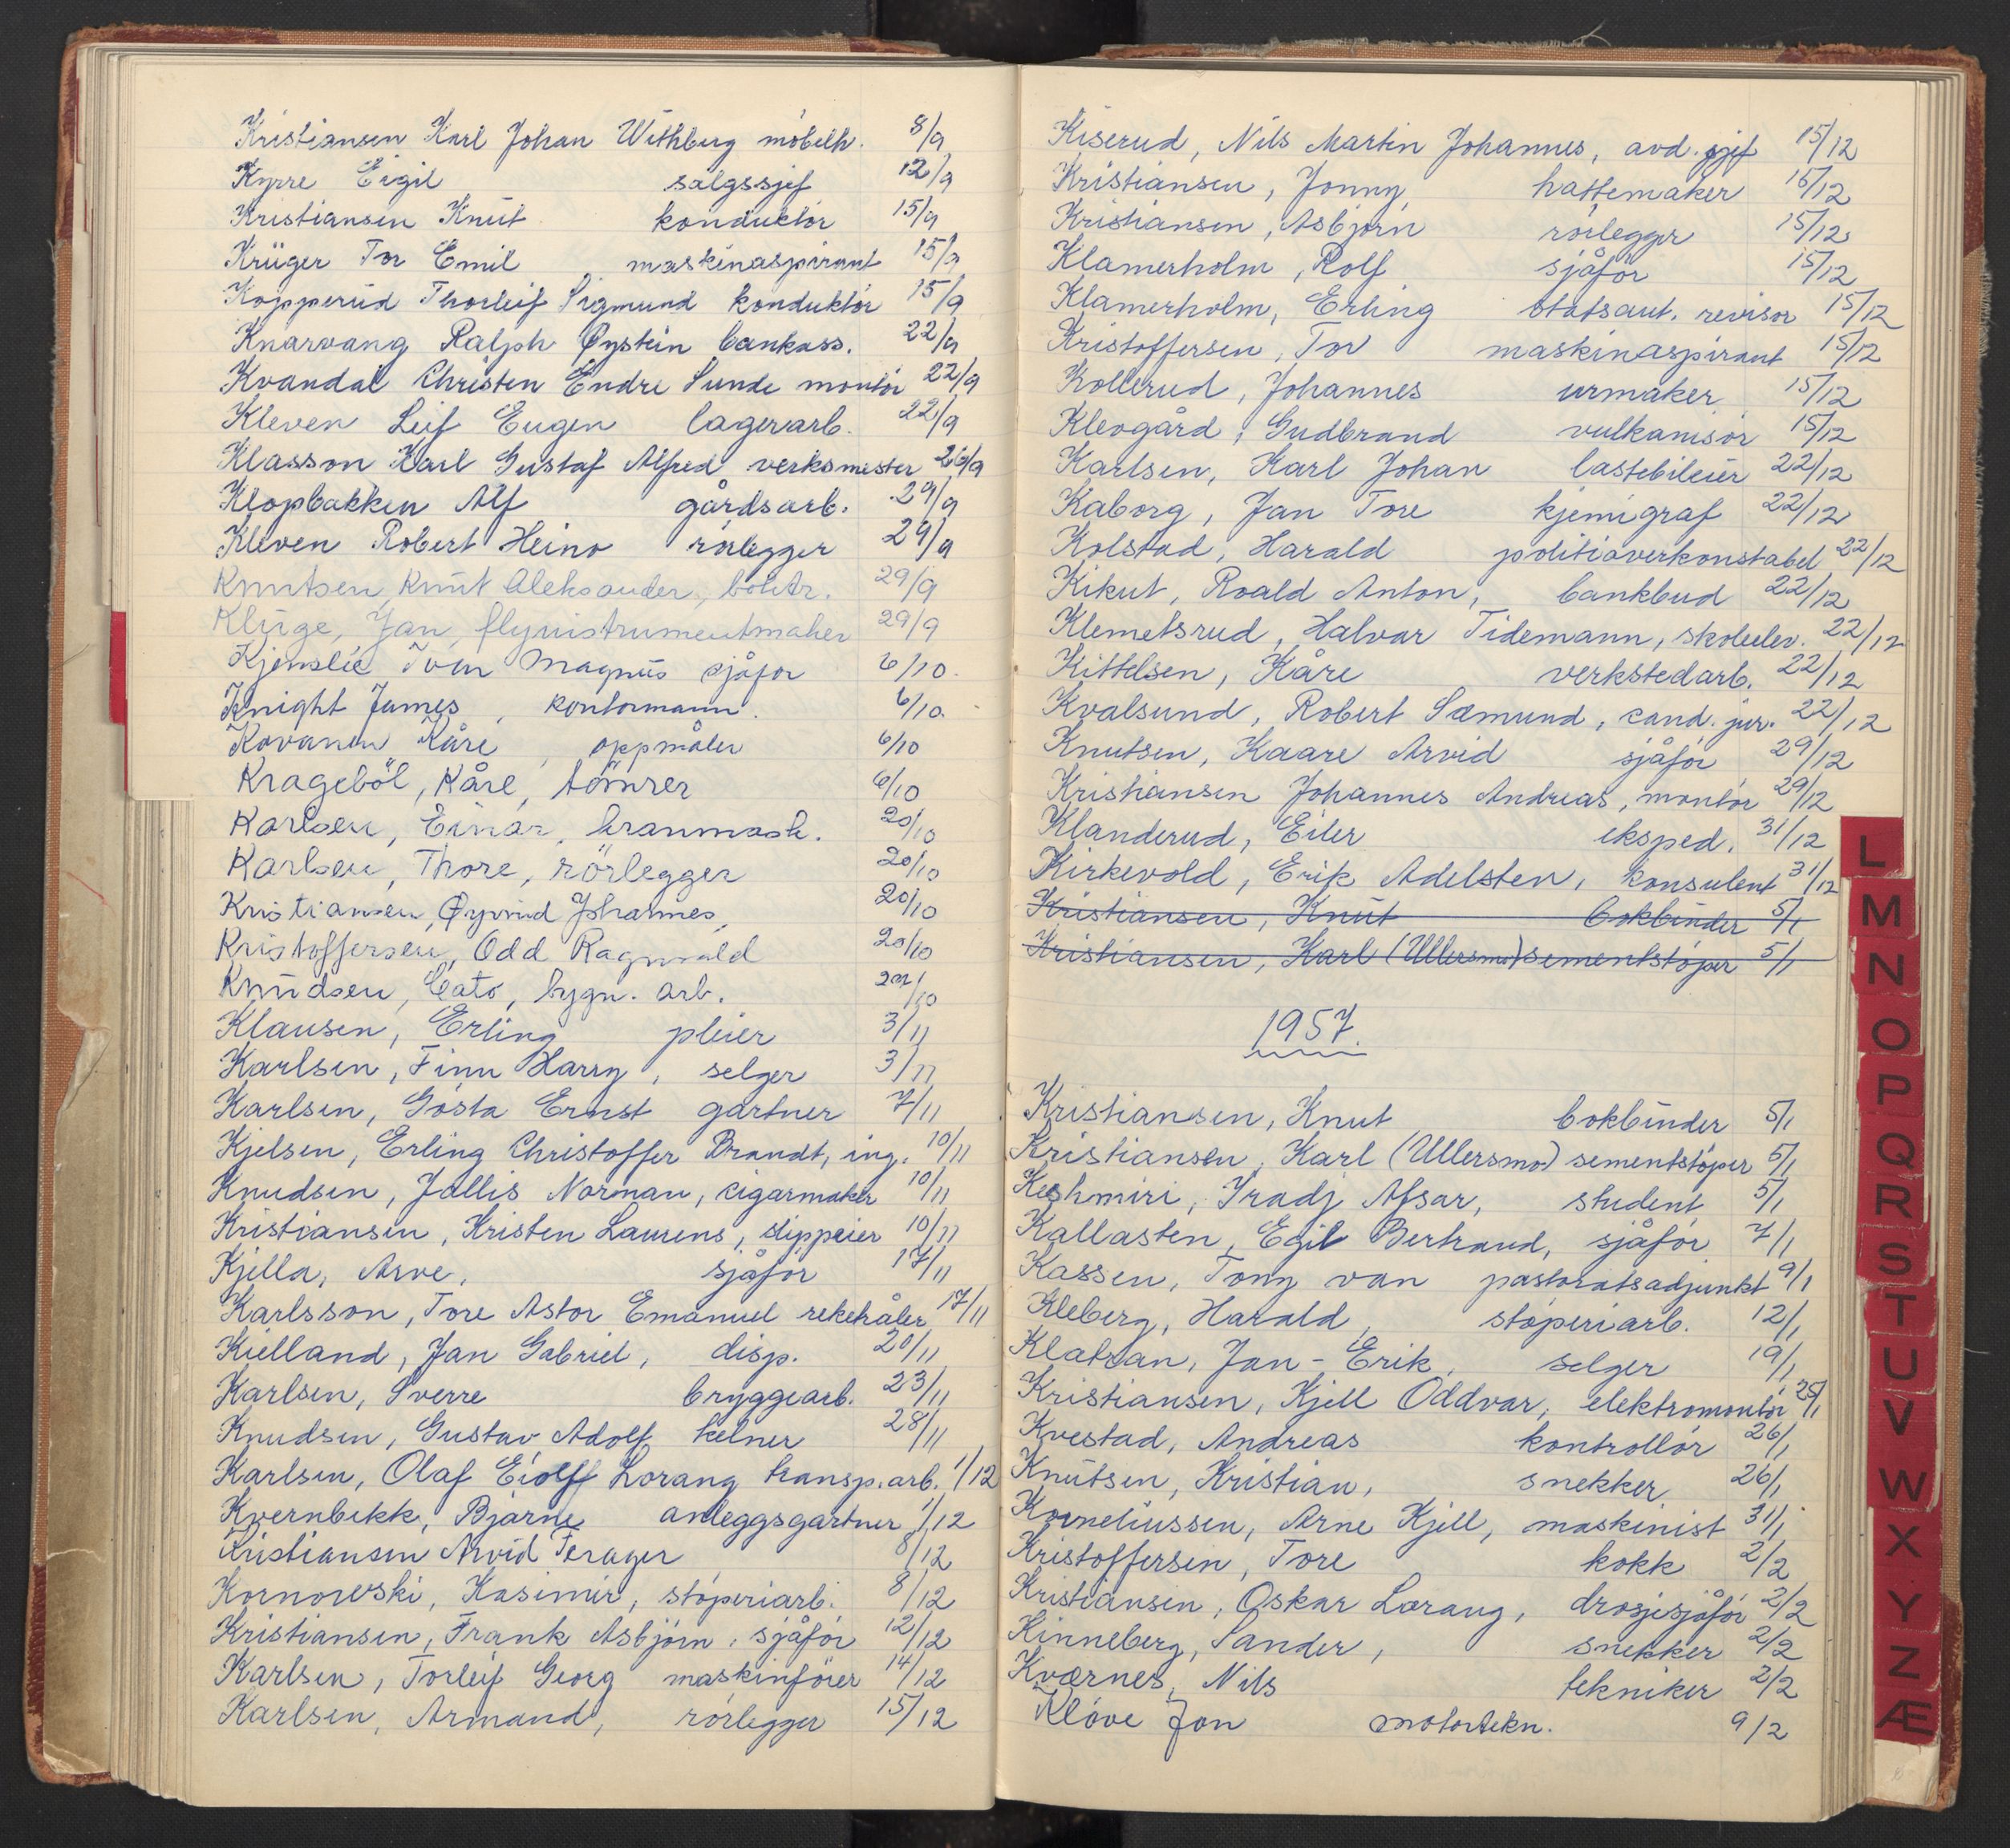 Kristiansen Karl Johan Withbug møbelh. 8/9
Kyrre Eigil salgssjef 12/9
Kristiansen Knut konduktör 15/9
Krüger Tor Emil maskinaspirant 15/9
Kopperud Thorleif Sigmund konduktör 15/9
Knarvang Ralph Øystein bankass. 22/9
Kvandal Christen Endre Sunde montör 22/9
Kleven Leif Eugen lagerarb. 22/9
Klasson Karl Gustaf Alfred verksmester 26/9
Klopbakken Alf gårdsarb. 29/9
Kleven Robert Heino rörlegger 29/9
Knutsen, Knut Aleksander, boktr. 29/9
Kluge, Jan, flyinstrumentmaker 29/9
Kjenslie Iver Magnus sjåfør 6/10.
Knight James, kontormann. 6/10.
Kovanen Kåre, oppmåler 6/10
Krageböl, Kåre, tömrer 6/10
Karlsen, Einar, kranmask. 20/10
Karlsen, Thore, rörlegger 20/10
Kristiansen, Øyvind Johannes, 20/10
Kristoffersen, Odd Ragnvald 20/10
Knudsen, Cato, bygn. arb. /10
Klausen, Erling pleier 3/11
Karlsen, Finn Harry, selger 3/11
Karlsen, Gösta Ernst gartner 7/11
Kjelsen, Erling Christoffer Brandt, ing. 10/11
Knudsen, Jallis Norman, sigarmaker 10/11
Kristiansen, Kristen Laurens, slippeier 10/11
Kjella, Arve, sjåför 17/11
Karlsson, Tore Astor Emanuel reketråler 17/11
Kielland, Jan Gabriel, disp. 20/11
Karlsen, Sverre bryggearb. 23/11
Knudsen, Gustav Adolf kelner 28/11
Karlsen, Olaf Eiolf Lorang transp.arb. 1/12
Kvernbekk, Bjarne anleggsgartner 1/12
Kristiansen Arvid Terager 8/12
Kornowski, Kasimir, stöperiarb. 8/12
Kristiansen, Frank Asbjörn, sjåför 12/12
Karlsen, Torleif Georg maskinförer 14/12
Karlsen, Armand, rörlegger 15/12
Kiserud, Nils Martin Johannes, avd. sjef 15/12
Kristiansen, Jonny, hattemaker 15/12
Kristiansen, Asbjörn rörlegger 15/12
Klamerholm, Rolf sjåför 15/12
Klamerholm, Erling statsaut. revisor 15/12
Kristoffersen, Tor maskinaspirant 15/12
Kollerud, Johannes urmaker 15/12
Klevgård, Gudbrand vulkanisör 15/12
Karlsen, Karl Johan lastebileier 22/12
Kaborg, Jan Tore kjemigraf 22/12
Kolstad, Harald politioverkonstabel 22/12
Kikut, Roald Anton, bankbud 22/12
Klemetsrud, Halvar Tidemann, skoleelev. 22/12
Kittelsen, Kåre verkstedarb. 22/12
Kvalsund, Robert Sæmund, cand. jur. 22/12
Knutsen, Kaare Arvid sjåför 29/12
Kristiansen Johannes Andreas, montör 29/12
Klanderud, Eiler eksped. 31/12
Kirkevold, Erik Adelsten, konsulent 31/12
Kristiansen, Knut bokbinder 5/1
Kristiansen, Karl (Ullersmo) sementstöper 5/1
1957.
Kristiansen, Knut bokbinder 5/1
Kristiansen, Karl (Ullersmo) sementstöper 5/1
Keshmiri, Iradj Afsar, student 5/1
Kallasten, Egil Bertrand, sjåför 7/1
Kassen, Tony van pastoratsadjunkt 9/1
Kleberg, Harald, stöperiarb. 12/1
Klatran, Jan-Erik, selger 19/1
Kristiansen, Kjell Oddvar, elektromontör 25/1
Kvestad, Andreas kontrollör 26/1
Knutsen, Kristian, snekker 26/1
Korneliussen, Arne Kjell, maskinist 31/1
Kristoffersen, Tore kokk 2/2
Kristiansen, Oskar Lorang, drosjesjåför 2/2
Kinneberg, Sander, snekker 2/2
Kværnes, Nils tekniker 2/2
Klöve Jon motortekn. 9/2
L
M
N
O
P
Q
R
S
T
U
V
W
X
Y
Z
Æ